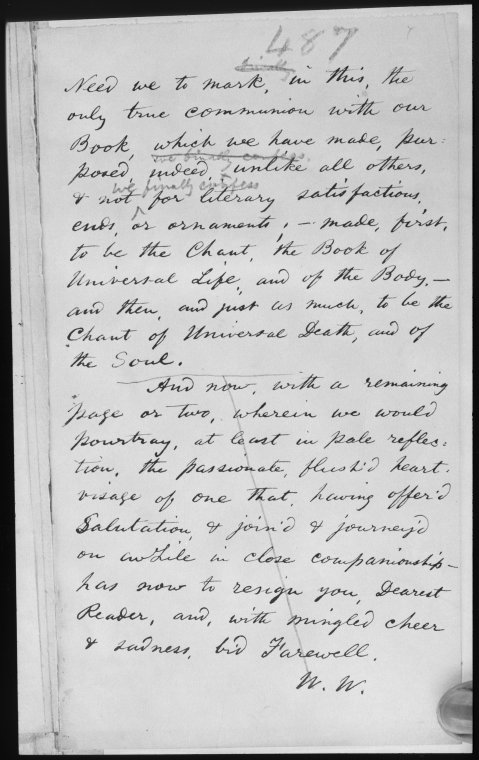 487
finally
Need we to mark, in this, the
only true communion with our
Book, which we have made, pur=
we finally confess,
posed, indeed, unlike all others,
we finally confess
& not for literary satisfactions,
ends, or ornaments; — made, first,
to be the Chant, the Book of
Universal Life, and of the Body, —
and then, and just as much, to be the
Chant of Universal Death, and of
the Soul.
And now, with a remaining
page or two, wherein we would
pourtray, at least in pale reflec=
tion, the passionate, flush'd heart-
visage of one that, having offer'd
Salutation, & join'd & journey'd
on awhile in close companionship —
has now to resign you, Dearest
Reader, and, with mingled cheer
& sadness, bid Farewell.
W. W.